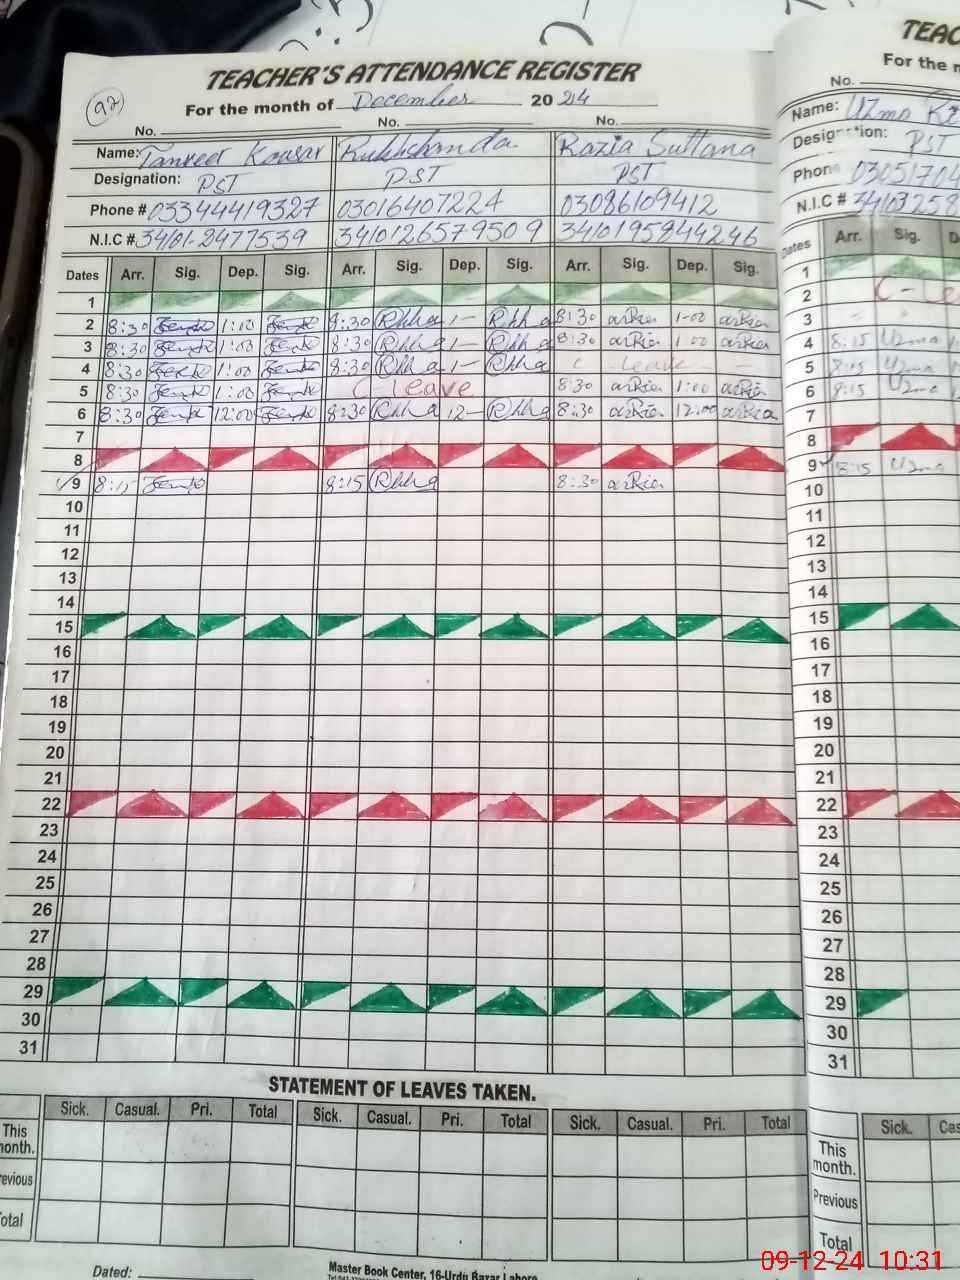 TEACHER'S ATTENDANCE REGISTER
92
For the month of December 2024
No. No. No.
Name: Tanveer Kousar Rukhshanda Razia Sultana
Designation: PST PST PST
Phone # 03344419327 03016407224 03086109412
N.I.C # 34101-2477539 3410126579509 3410195844246
Dates Arr. Sig. Dep. Sig. Arr. Sig. Dep. Sig. Arr. Sig. Dep. Sig.
1
2 8:30 1:00 8:30 1- 8:30 1-00
3 8:30 1:00 8:30 1- 8:30 1:00
4 8:30 1:00 8:30 1- C Leave
5 8:30 1:00 C Leave 8:30 1:00
6 8:30 12:00 8:30 12- 8:30 12:00
7
8
9 8:15 8:15 8:30
10
11
12
13
14
15
16
17
18
19
20
21
22
23
24
25
26
27
28
29
30
31
STATEMENT OF LEAVES TAKEN.
Sick. Casual. Pri. Total Sick. Casual. Pri. Total Sick. Casual. Pri. Total
This
month.
Previous
Total
Dated:
Master Book Center, 16-Urdu Bazar Lahore
TEAC
For the m
No.
Name: Uzma
Designation: PST
Phone 03051704
N.I.C # 34103258
Dates Arr. Sig. D
1
2 C-Le
3
4 8:15 Uzma
5 8:15 Uzma
6 8:15 Uzma
7
8
9 8:15 Uzma
10
11
12
13
14
15
16
17
18
19
20
21
22
23
24
25
26
27
28
29
30
31
Sick. Cas
This
month.
Previous
Total
09-12-24 10:31